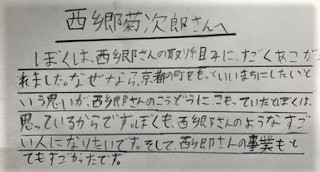 西郷菊次郎さんへ
ぼくは、西郷さんの取り組みに、すごくあこが
れました。なぜなら、京都の町をもっといいまちにしたいと
いう思いが、西郷さんのこうどうに、こもっていたとぼくは、
思っているからです。ぼくも、西郷さんのようなすご
い人になりたいです。そして、西郷さんの事業もと
てもすごかったです。